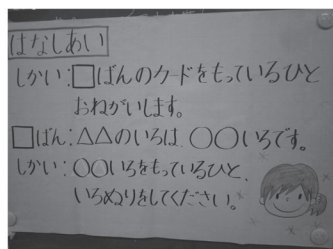 はなしあい
しかい:□ばんのカードをもっているひと
おねがいします。
□ばん:△△のいろは、○○いろです。
しかい:○○いろをもっているひと、
いろぬりをしてください。